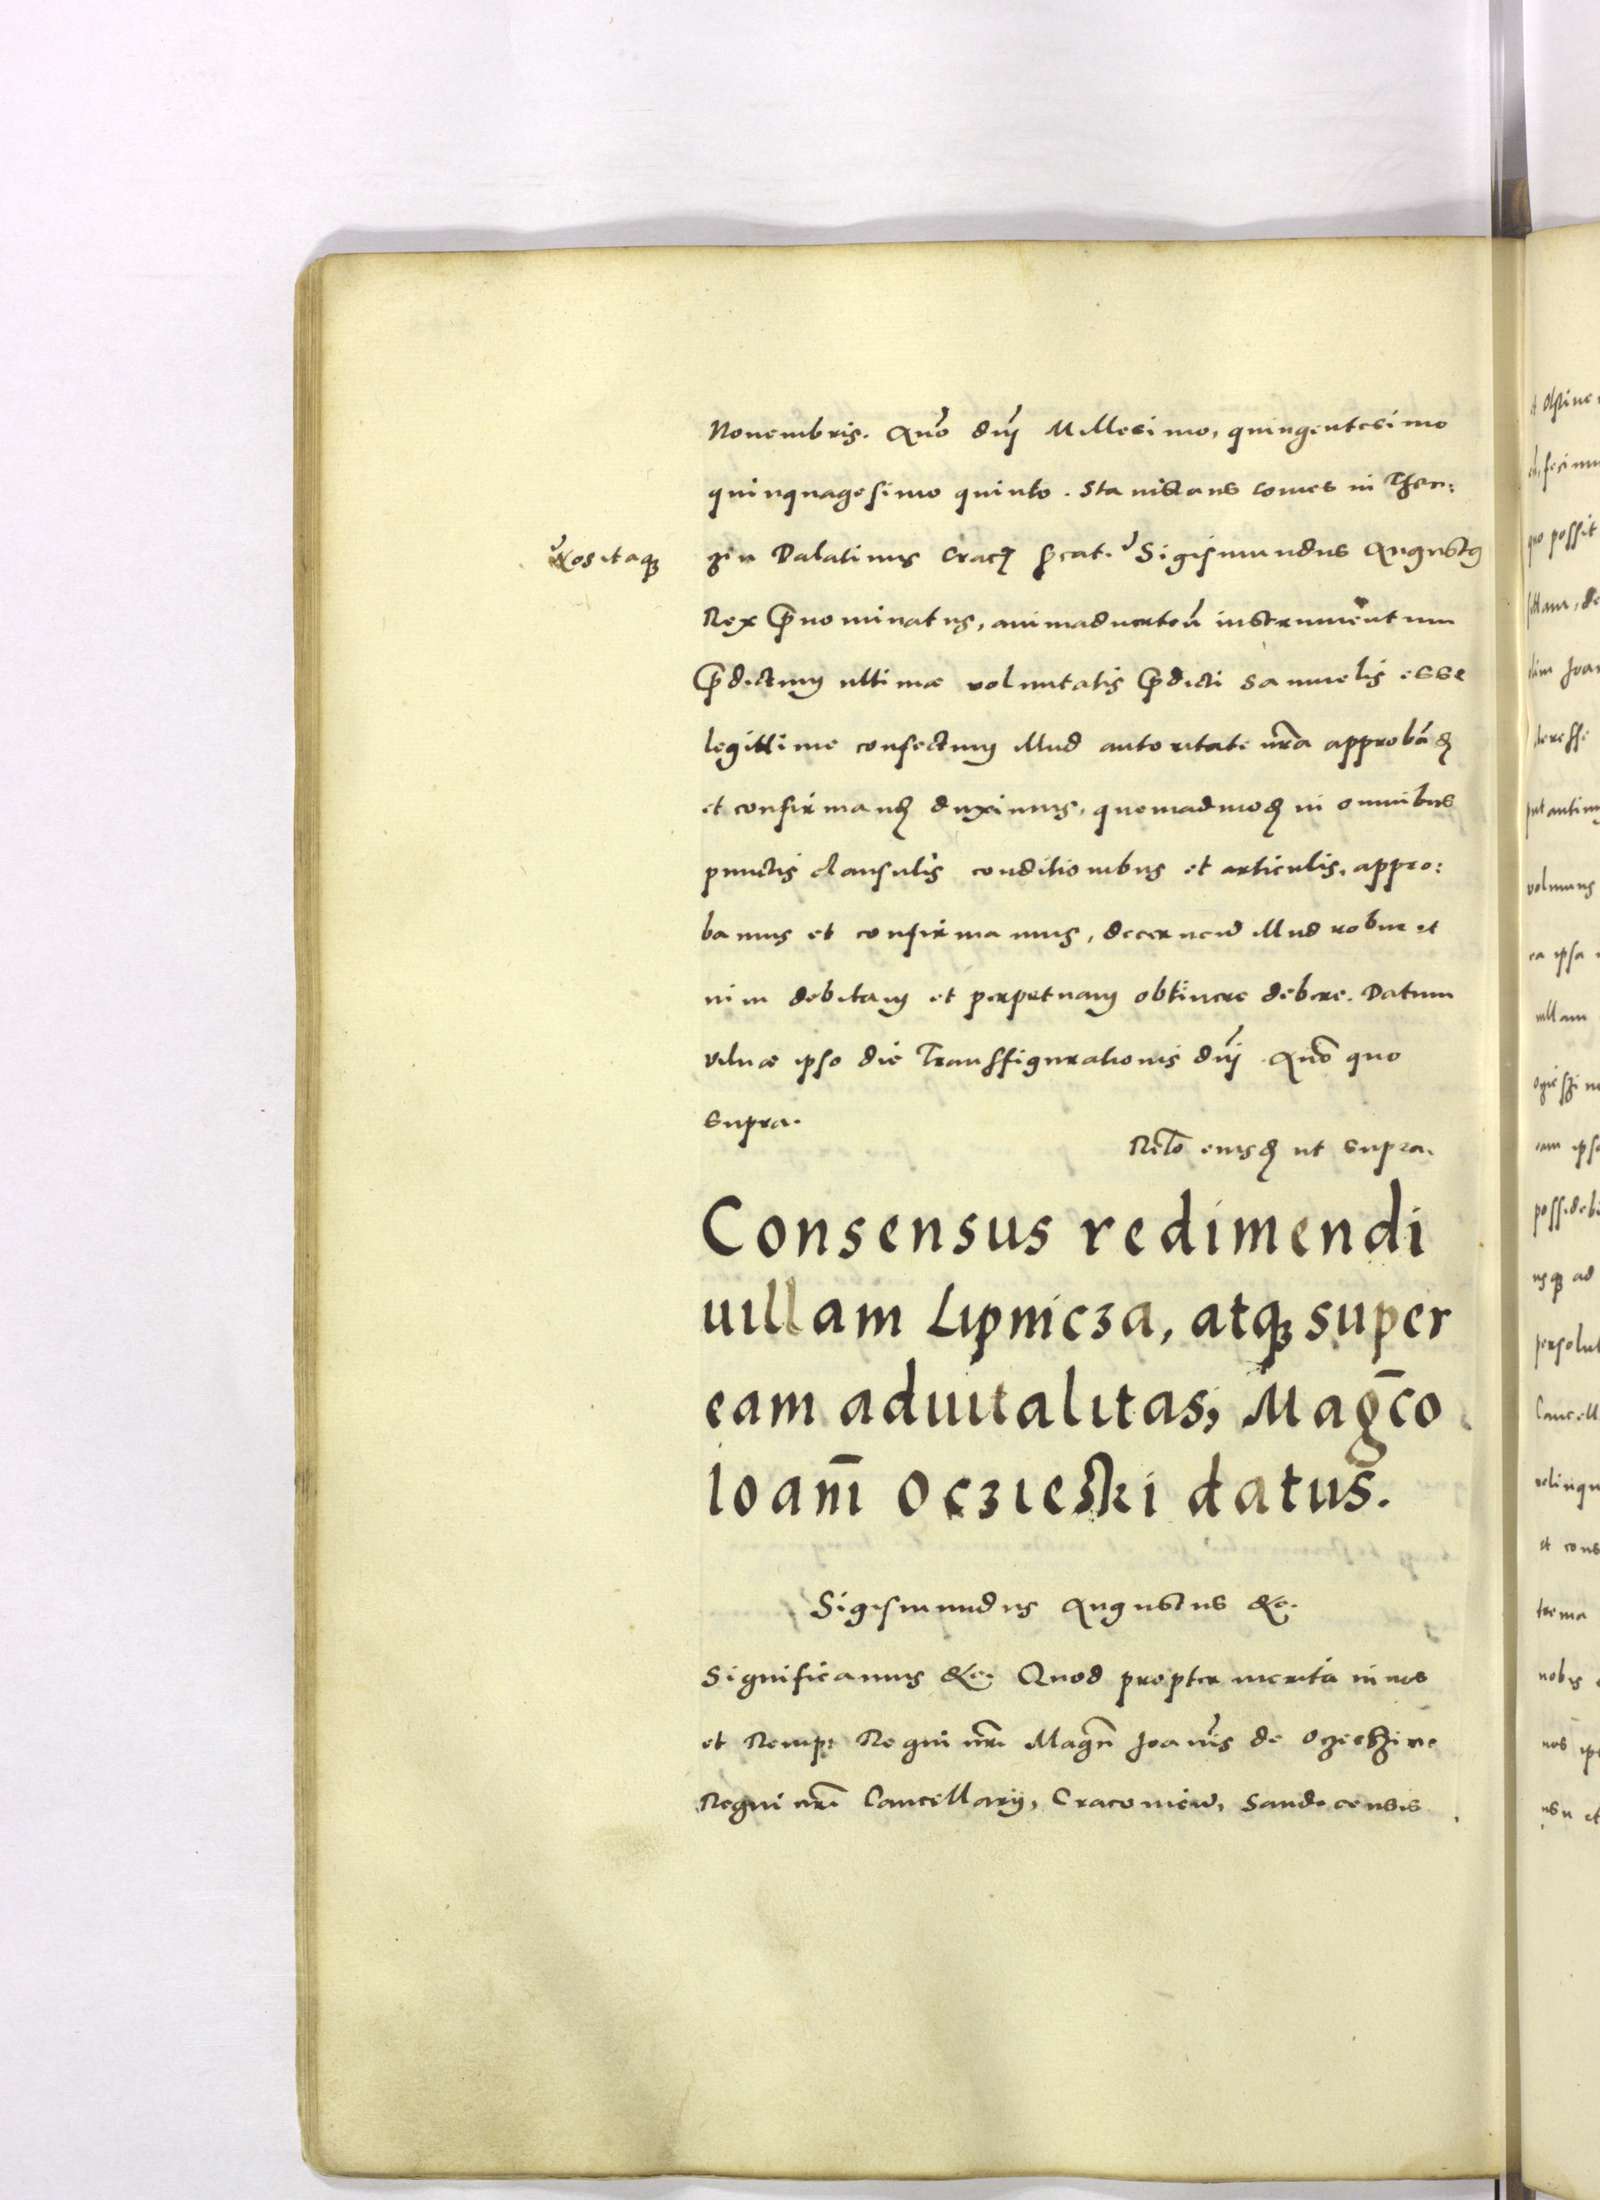 Nouembris. Año dñi Millesimo, quingentesimo
quinquagesimo quinto. Stanislaus comes in Then:
Nos itaqꝫ
zin Palatinus Sigismundus Augustꝯ
Rex p̄nominatus, animaduerten̄ instrumentum
p̄dictum ultimæ voluntatis p̄dicti Samuelis esse
legittime confectum illud autoritate nr̃a approbāđ
et confirmanđ duximus, quemadmođ in omnibus
punctis clausulis conditionibus et articulis, appro:
bamus et confirmamus, decernen̄ illud robur et
uim debitam et perpetuam obtinere debere. Datum
Vilnæ ipso die Transfigurationis dñi. Año quo
supra.
Relō eiusđ ut supra.
Consensus redimendi
uillam Lipnicza, atqꝫ super
eam aduitalitas, Mag̃co
Ioanī Oczieski datus.
Sigismundus Augustus &c.
Significamus &c. Quod propter merita in nos
et Remp: Regni nr̃i Mag̃n Joañis de Oczieschine
Regni nr̃i Cancellarij, Cracouien̄, Sandecensis